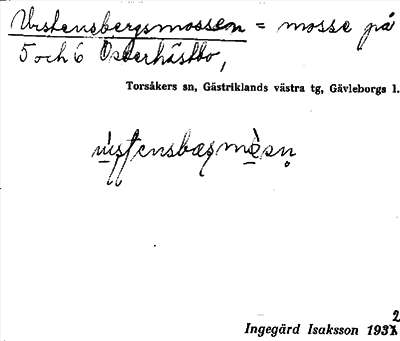 Urstensbergsmossen = mosse på
5 och 6 Österhästbo,
Torsåkers sn, Gästriklands västra tg, Gävleborgs l.
Ingegärd Isaksson 1932